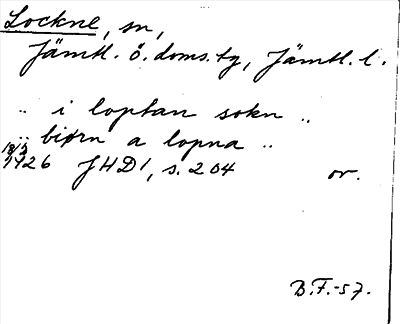 Lockne, sn,
Jämtl. ö. doms. tg, Jämtl. l.
.. i loptan sokn ..
.. biørn a lopna ..
1426 JHD1, s. 204 or.
B.F.-57.